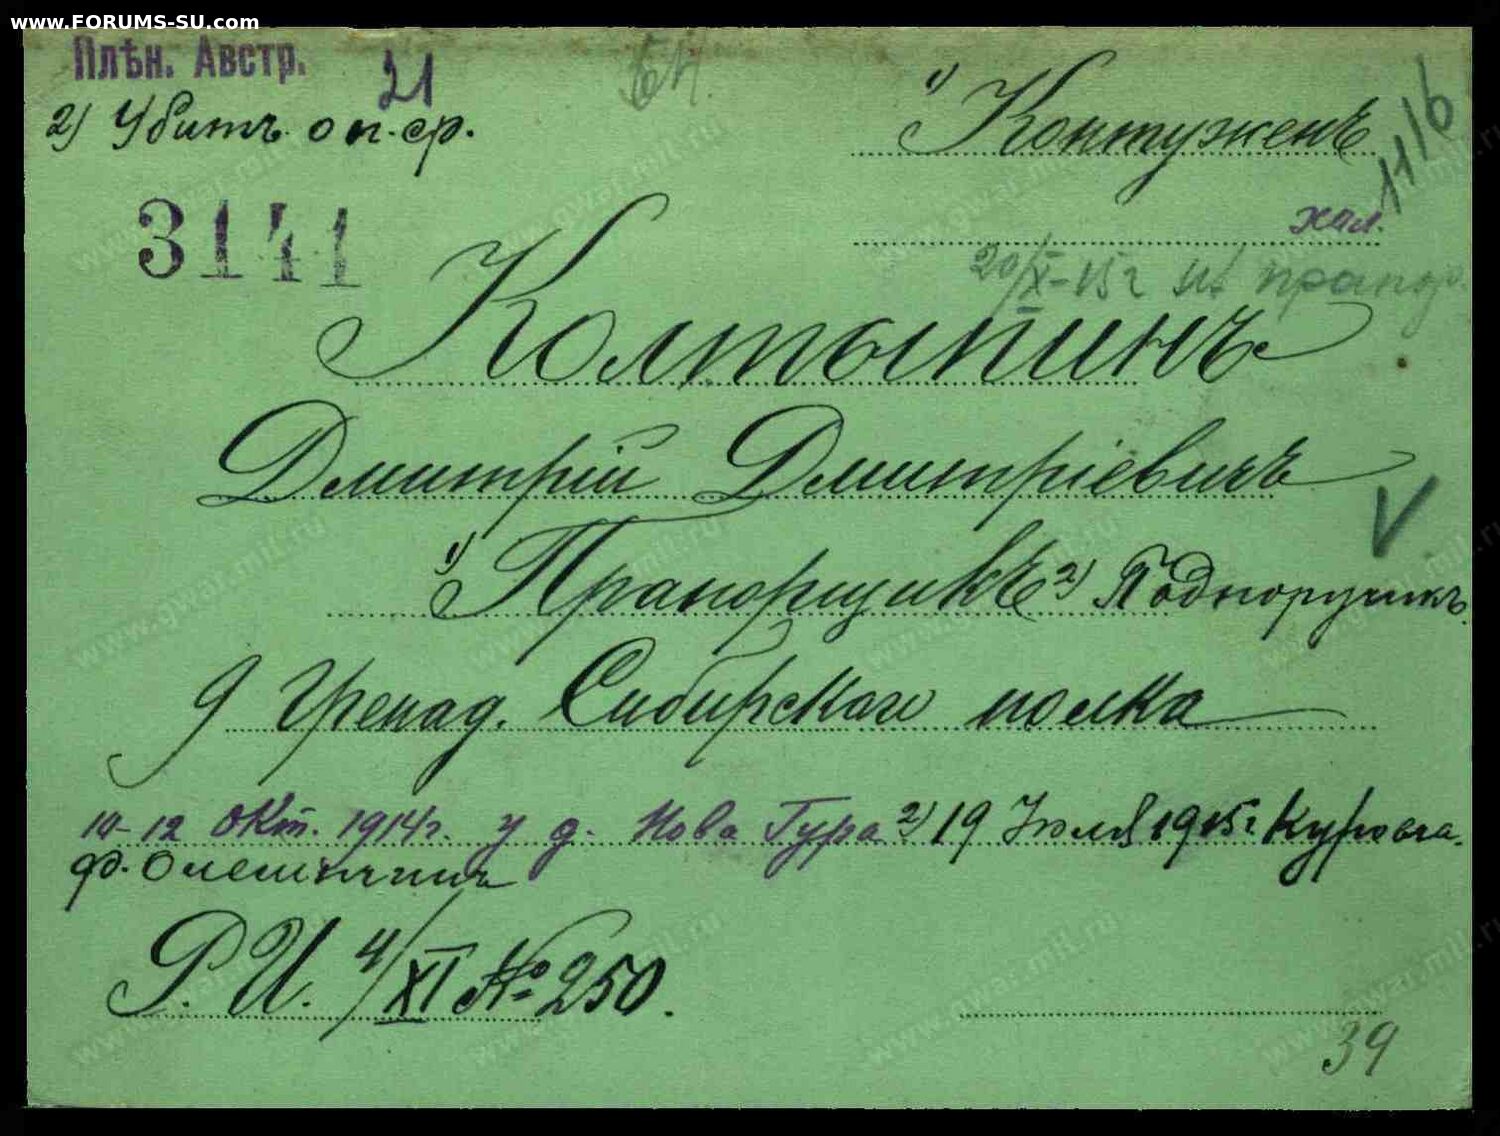 www.FORUMS-SU.com
Плѣн. Австр.
21
2) Убитъ о н. ср.
1) Контуженъ
11/6
3141
20/X-15 г
Колтыпинъ
Дмитрій Дмитріевичъ
V
1) Прапорщикъ 2) Подпоручикъ.
9 Гренад. Сибирскаго полка
10-12 Окт. 1914 г. у д. Нова Гура 2) 19 Іюля 1915 г.
Р. И. 4/XI № 250.
39
www.gwar.mil.ru